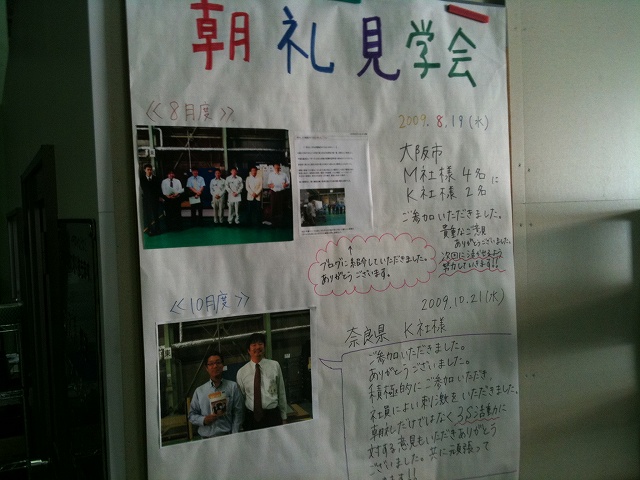 朝礼見学会
≪8月度≫
2009.8.19(水)
大阪市
M社様 4名に
K社様 2名
ご参加いただきました。
貴重なご意見
ありがとうございました。
次回に活かせるよう
努力していきます!!
ブログに紹介していただきました。
ありがとうございます。
≪10月度≫
2009.10.21(水)
奈良県 K社様
ご参加いただきました。
ありがとうございました。
積極的にご参加いただき、
社員によい刺激をいただきました。
朝礼だけではなく3S活動に
対する意見もいただきありがとう
ございました。共に頑張って